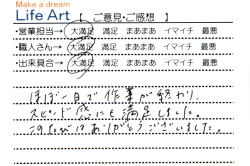 Make a dream
Life Art 【 ご意見・ご感想 】
・営業担当→ 大満足 満足 まあまあ イマイチ 最悪
・職人さん→ 大満足 満足 まあまあ イマイチ 最悪
・出来具合→ 大満足 満足 まあまあ イマイチ 最悪
ほぼ一日で作業が終わり、
スピード感にも満足しました。
このたびはありがとうございました。